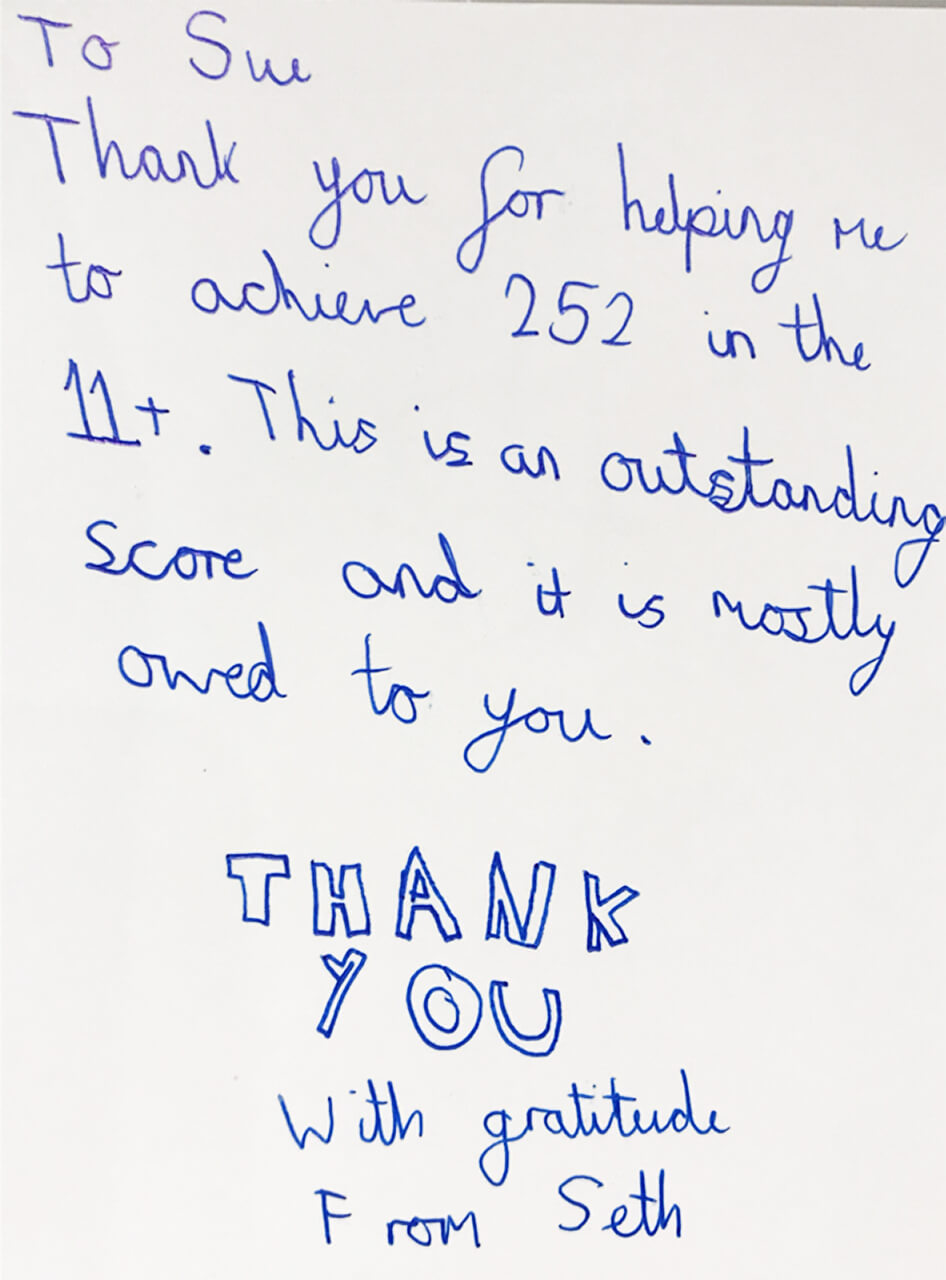 To Sue
Thank you for helping me
to achieve 252 in the
11+. This is an outstanding
score and it is mostly
owed to you.
THANK
YOU
With gratitude
From Seth